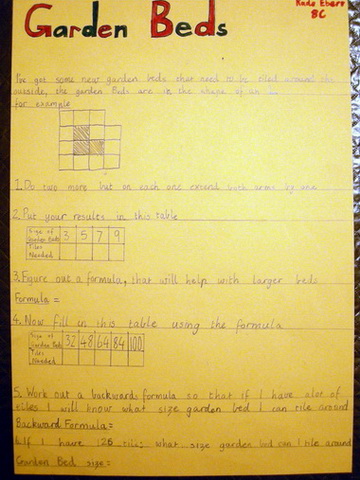 Garden Beds
8C
I've got some new garden beds that need to be tiled around the
outside, the garden Beds are in the shape of an
for example
1. Do two more but on each one extend both arms by one
2. Put your results in this table
Size of Garden Beds 3 5 7 9
Tiles Needed
3. Figure out a formula, that will help with larger beds
Formula =
4. Now fill in this table using the formula
Size of Garden Beds 32 48 64 84 100
Tiles Needed
5. Work out a backwards formula so that if I have alot of
tiles I will know what size garden bed I can tile around
Backward Formula=
6. If I have 126 tiles what size garden bed can I tile around
Garden Bed size=